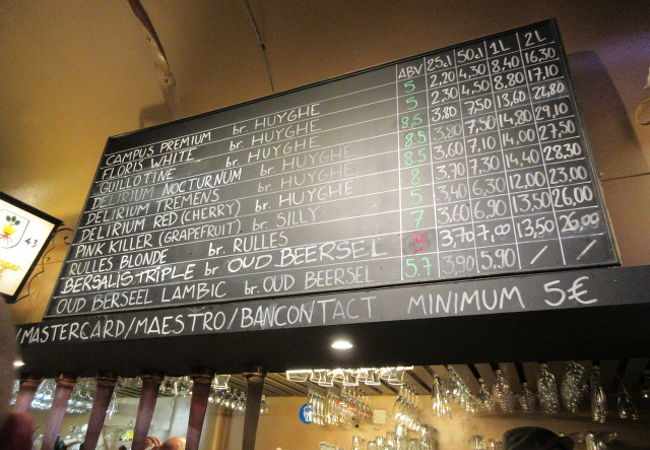 ABV 25cl 50cl 1L 2L
CAMPUS PREMIUM br. HUYGHE 5 2,20 4,30 8,40 16,30
FLORIS WHITE br. HUYGHE 5 2,30 4,50 8,80 17,10
GUILLOTINE br. HUYGHE 8,5 3,80 7,50 13,60 22,80
DELIRIUM NOCTURNUM br. HUYGHE 8.5 3,80 7,50 14,80 29,10
DELIRIUM TREMENS br. HUYGHE 8.5 3,60 7,10 14,00 27,50
DELIRIUM RED (CHERRY) br. HUYGHE 8 3,70 7,30 14,40 28,30
PINK KILLER (GRAPEFRUIT) br. SILLY 5 3,40 6,30 12,00 23,00
RULLES BLONDE br. RULLES 7 3,60 6,90 13,50 26,00
BERSALIS TRIPLE br OUD BEERSEL 9 3,70 7,00 13,50 26,00
OUD BERSEEL LAMBIC br. OUD BEERSEL 5.7 3,90 5.90 / /
/MASTERCARD/MAESTRO/BANCONTACT MINIMUM 5€
43